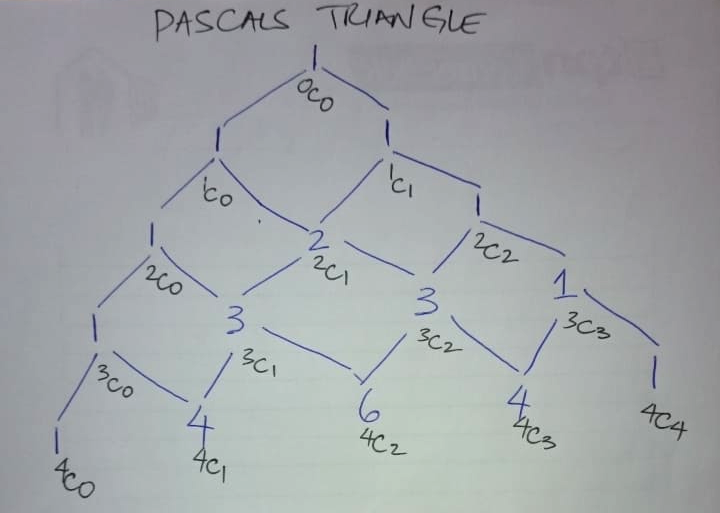 PASCALS TRIANGLE
1
0C0
1 1
1C0 1C1
1 2 1
2C0 2C1 2C2
1 3 3 1
3C0 3C1 3C2 3C3
1 4 6 4 1
4C0 4C1 4C2 4C3 4C4